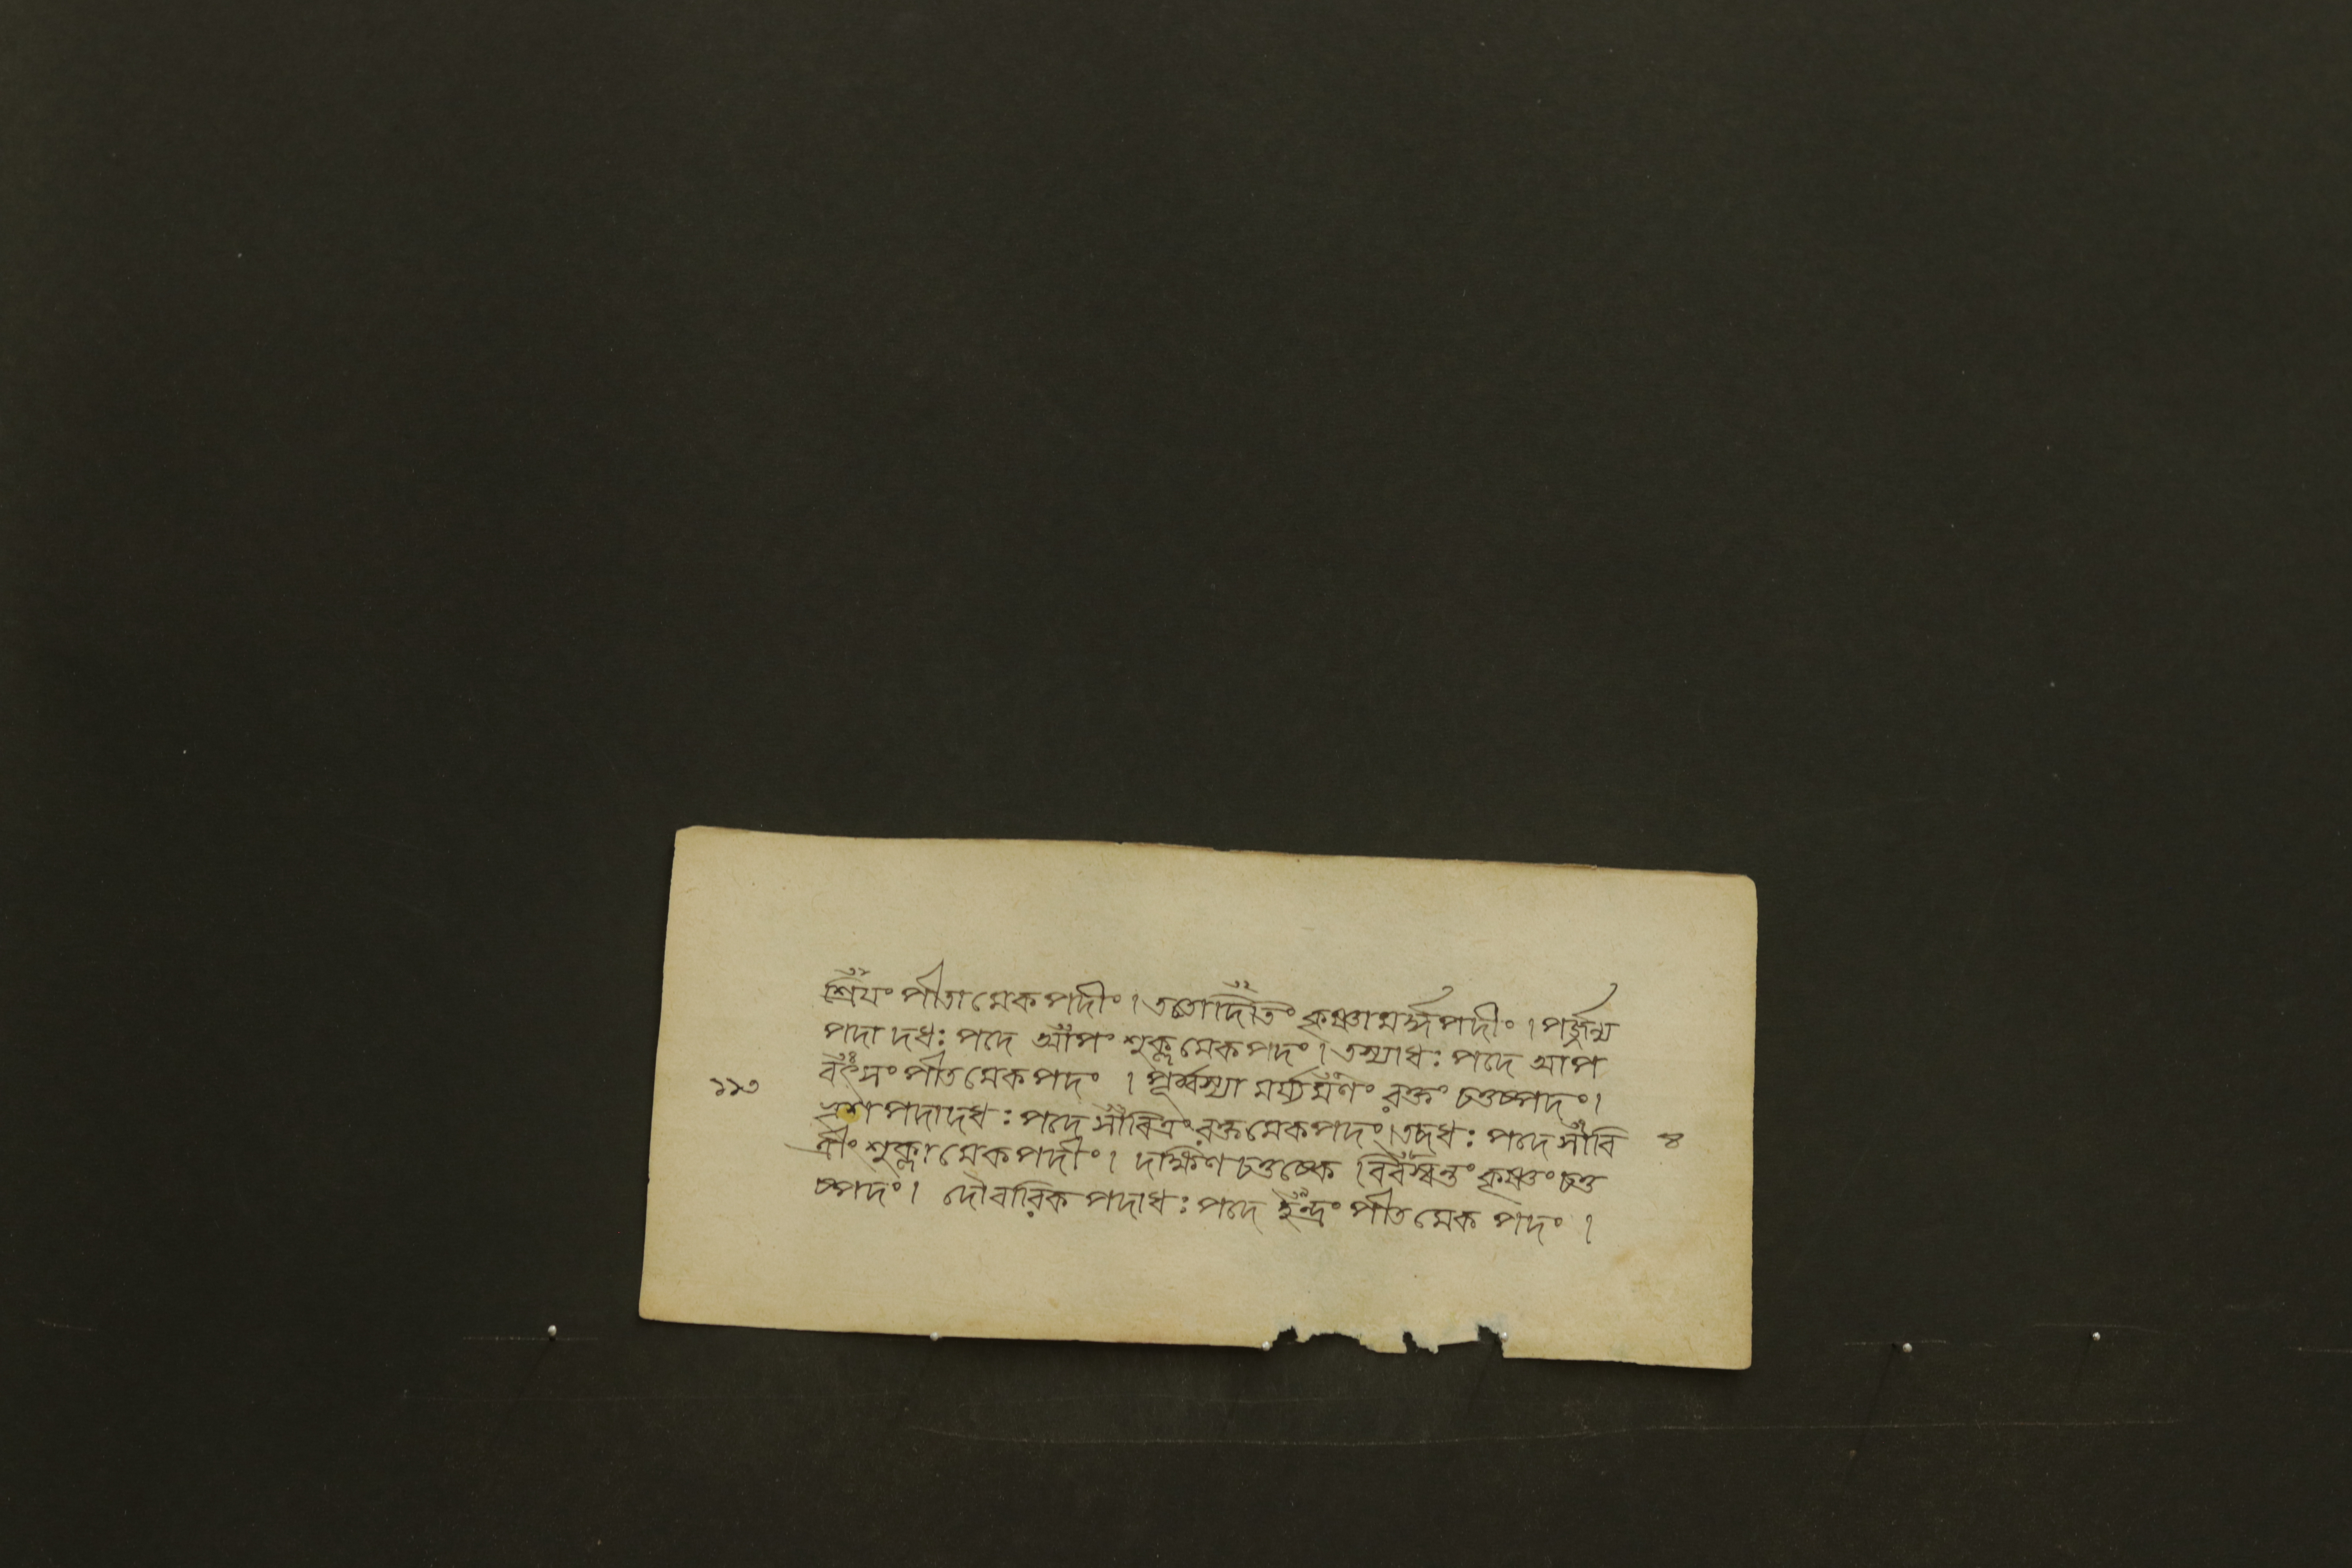 শ্রিয়ং পীতামেকপদীং । ততোদিতিং কৃষ্ণামর্দ্ধপদীং । পর্জ্জন্য
পদাদধঃ পদে আপং শুক্লমেকপদং । তস্যাধঃ পদে আপ
বৎসং পীতমেকপদং । পূর্ব্বস্যামর্য্যমণং রক্তং চতুষ্পদং ।
ভৃশপদাদধঃ পদে সাবিত্রং রক্তমেকপদং । তদধঃ পদে সাবি
ত্রীং শুক্লামেকপদীং । দক্ষিণচতুষ্কে বিবস্বন্তং কৃষ্ণং চতু
ষ্পদং । দৌবারিকপদাধঃ পদে ইন্দ্রং পীতমেকপদং ।
১১৩
৪